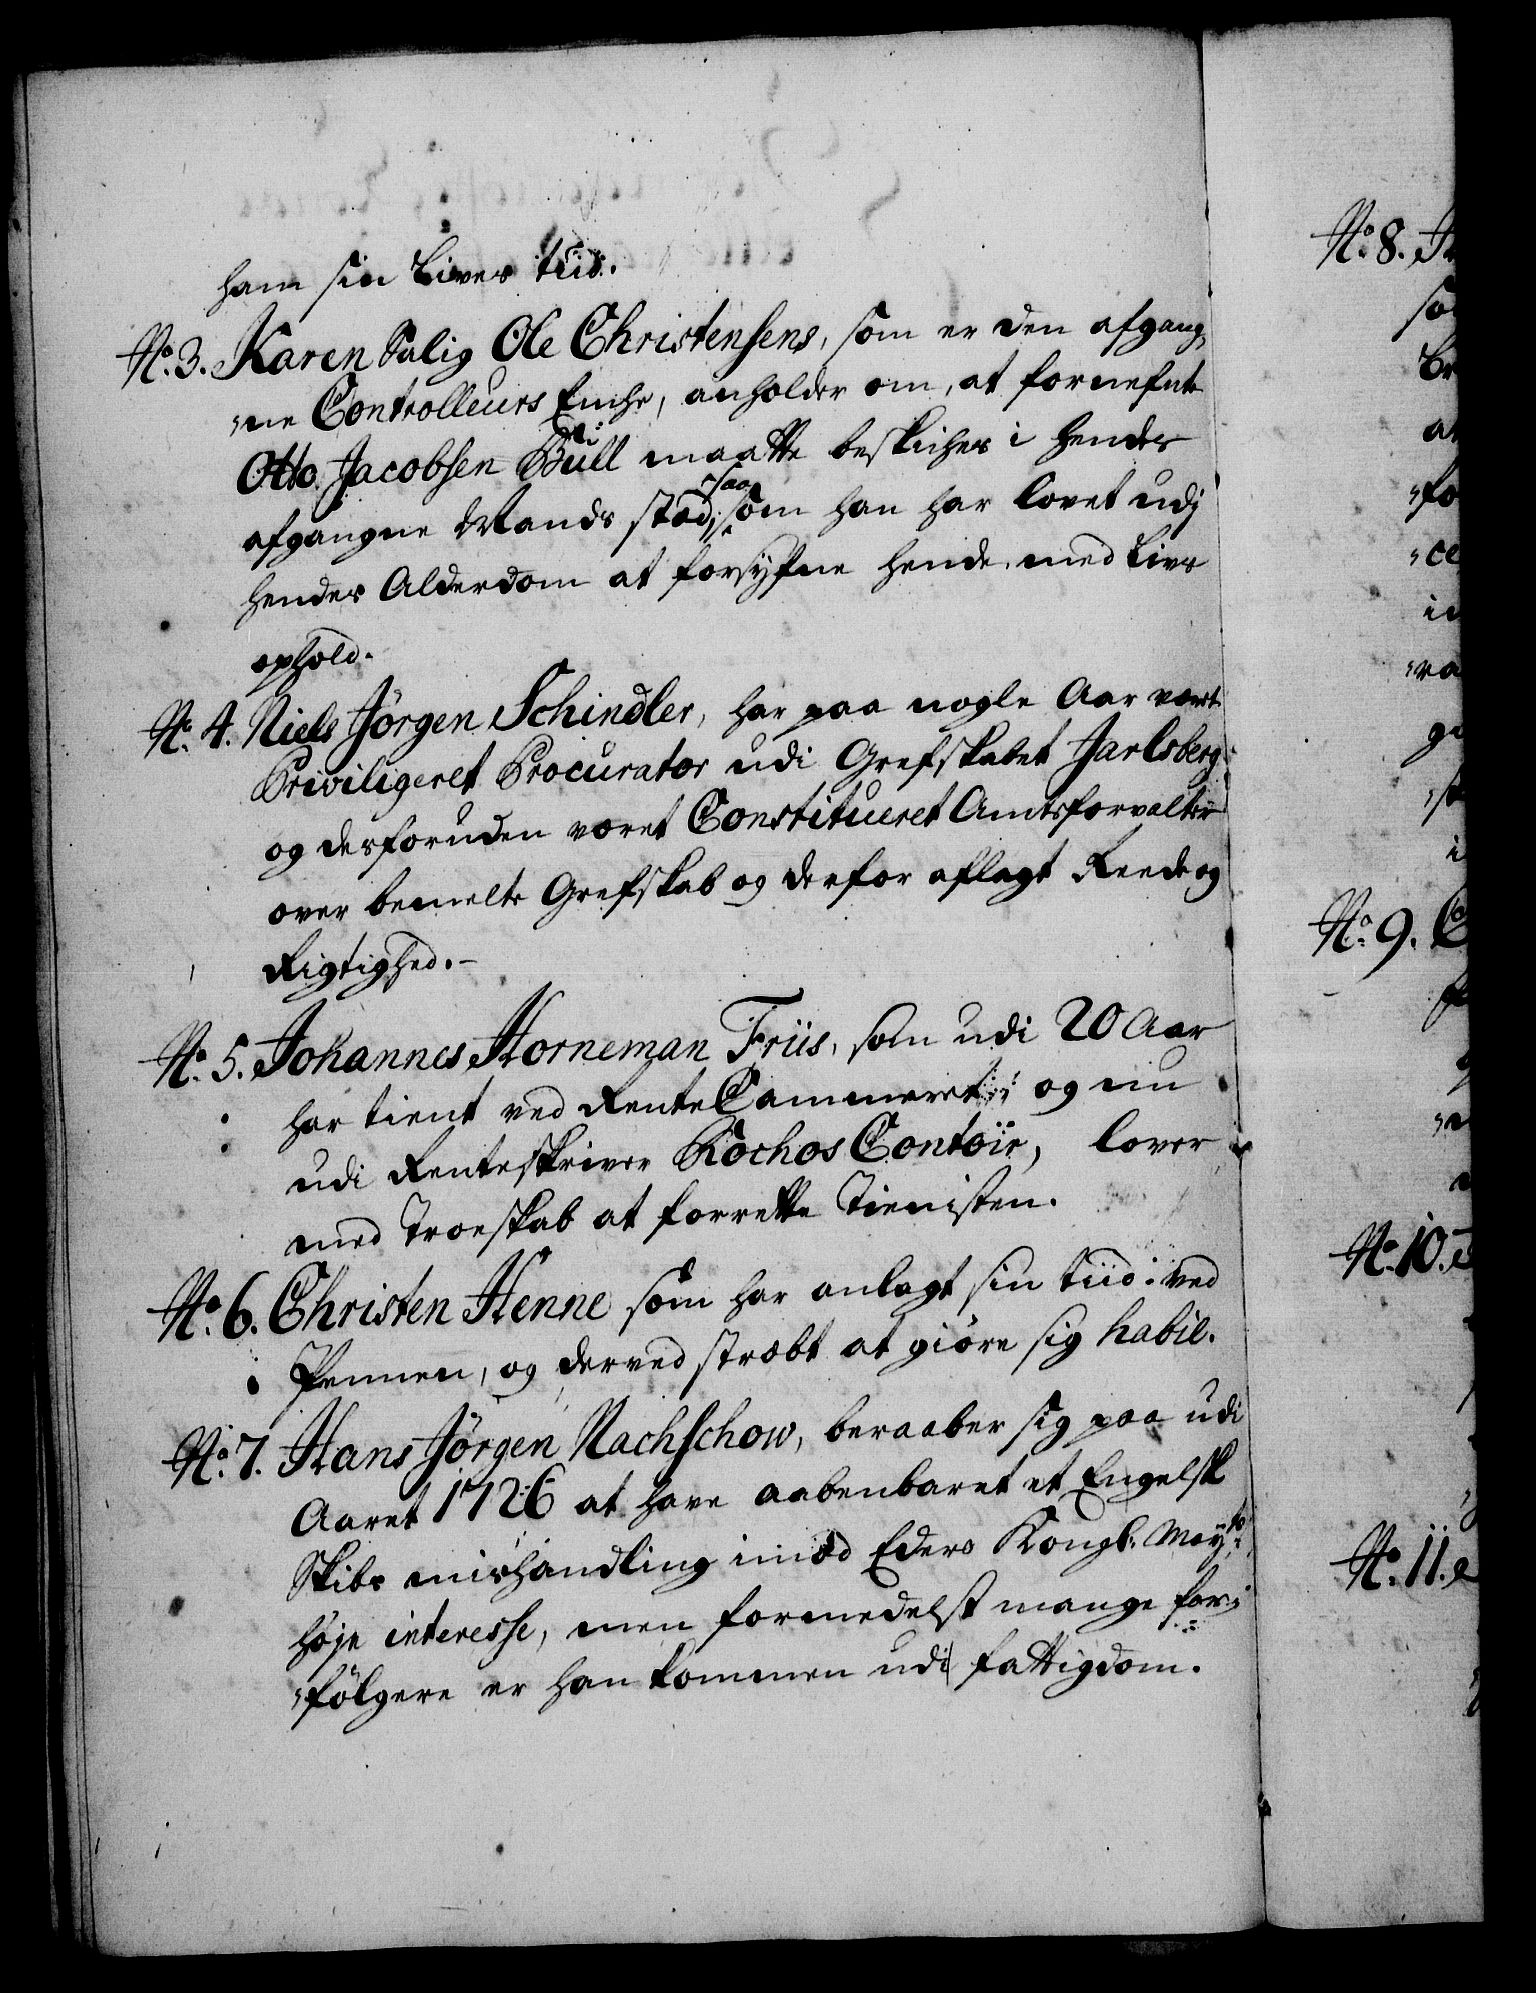 ham sin Lives tiid.
No. 3. Karen Salig Ole Christensens, som er den afgang,
"ne Controlleurs Enche, anholder om, at fornefnte
Otto Jacobsen Bull maatte beskiches i hendes
afgangne Mands stæd, saasom han har lovet udj
hendes Alderdom at forsyfne hende med Livs
ophold.
No. 4. Niels Jörgen Schindler, har paa nogle Aar været
Priviligeret Procurator udi Grefskabet Jarlsberg
og desforuden været Constitueret Amtsforvalter
over bemelte Grefskab og derfor aflagt Reede og
Rigtighed.-
No. 5. Johannes Horneman Friis, som udi 20 Aar
har tient ved RenteCammeret, og nu
udi Renteskriver Kochos Contoir, lover
med Troeskab at forrette Tienisten.
No. 6. Christen Henne som har anlagt sin tiid ved
Pennen, og derved stræbt at giöre sig habil.
No. 7. Hans Jörgen Nachschow, beraaber sig paa udi
Aaret 1726 at have aabenbaret et Engelsk
Skibs mishandling imod Eders Kongl: Mayts:
höje interesse, men formedelst mange for,
"fölgere er han kommen udi fattigdom.
No. 8.
No. 9.
No. 10.
No. 11.